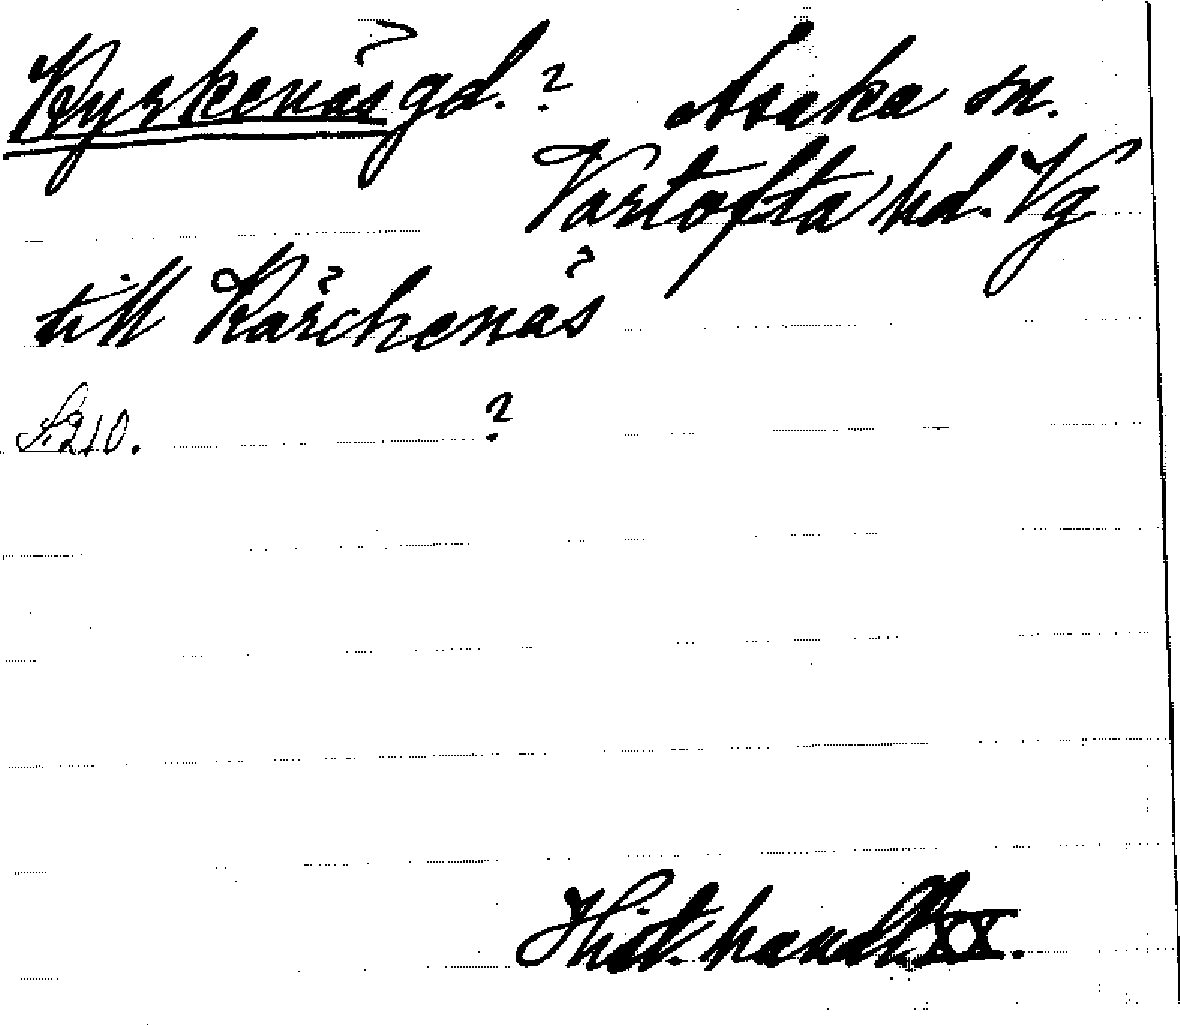 Kyrkenäs gd. ? Åsaka sn.
Vartofta hd. Vg
till Kärchenäs
S. 210. ?
Hist. handl. XX.